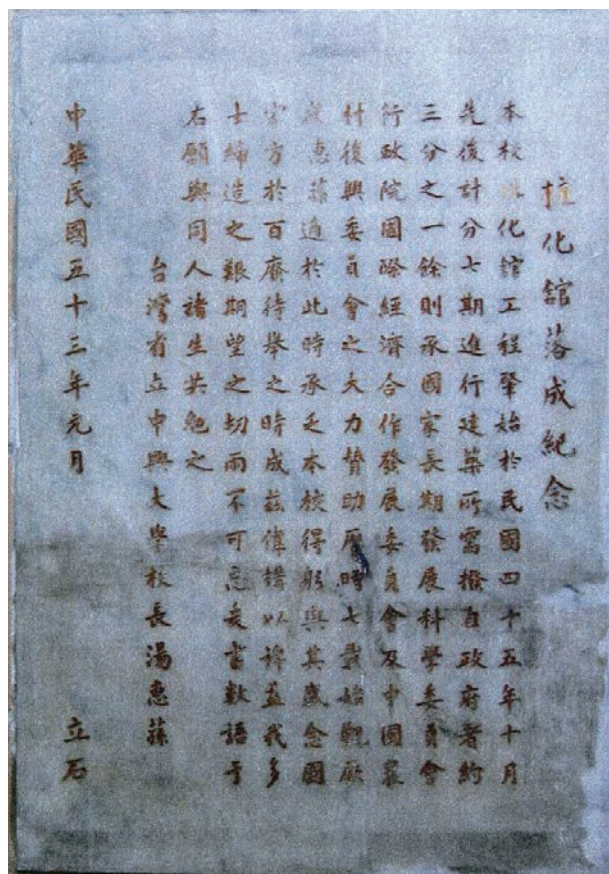 植化館落成紀念
本校植化館工程肇始於民國四十五年十月
先後計分七期進行建築所需撥自政府者約
三分之一餘則承國家長期發展科學委員會
行政院國際經濟合作發展委員會及中國農
村復興委員會之大力贊助歷時七載始觀厥
成惠蓀適於此時承乏本校得躬與其盛念國
家方於百廢待舉之時成茲偉構以裨益我多
士締造之艱期望之切而不可忘爰書數語于
右願與同人諸生共勉之
台灣省立中興大學校長湯惠蓀
中華民國五十三年元月 立石